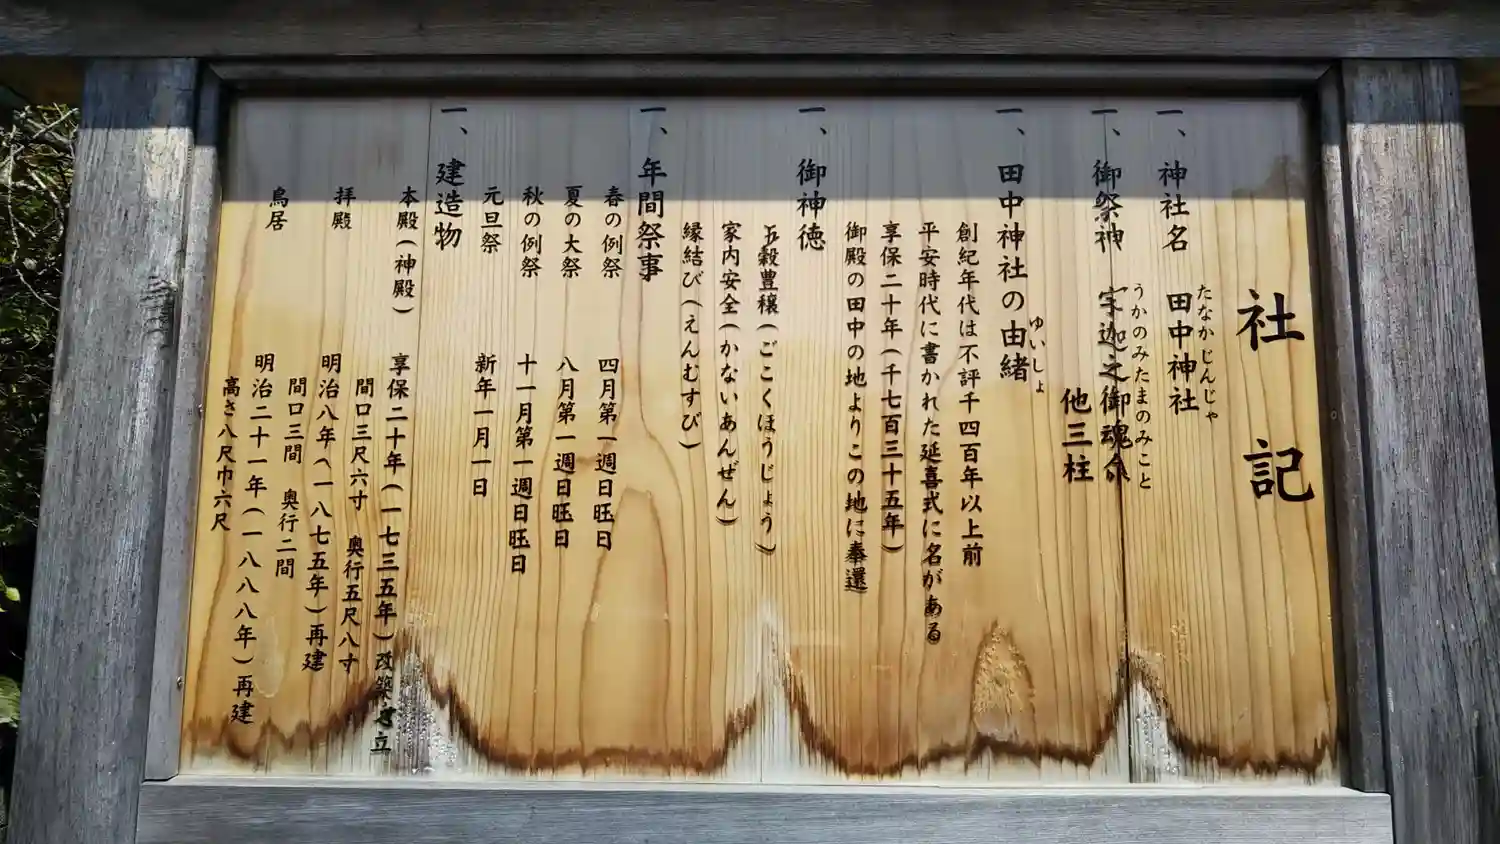 社記
一、神社名 田中神社
たなかじんじゃ
一、御祭神 宇迦之御魂命
うかのみたまのみこと
他三柱
一、田中神社の由緒
ゆいしょ
創紀年代は不評千四百年以上前
平安時代に書かれた延喜式に名がある
享保二十年(千七百三十五年)
御殿の田中の地よりこの地に奉還
一、御神徳
五穀豊穣(ごこくほうじょう)
家内安全(かないあんぜん)
縁結び(えんむすび)
一、年間祭事
春の例祭 四月第一週日曜日
夏の大祭 八月第一週日曜日
秋の例祭 十一月第一週日曜日
元旦祭 新年一月一日
一、建造物
本殿(神殿) 享保二十年(一七三五年)改築 立
間口三尺六寸 奥行五尺八寸
拝殿 明治八年(一八七五年)再建
間口三間 奥行二間
鳥居 明治二十一年(一八八八年)再建
高さ八尺巾六尺